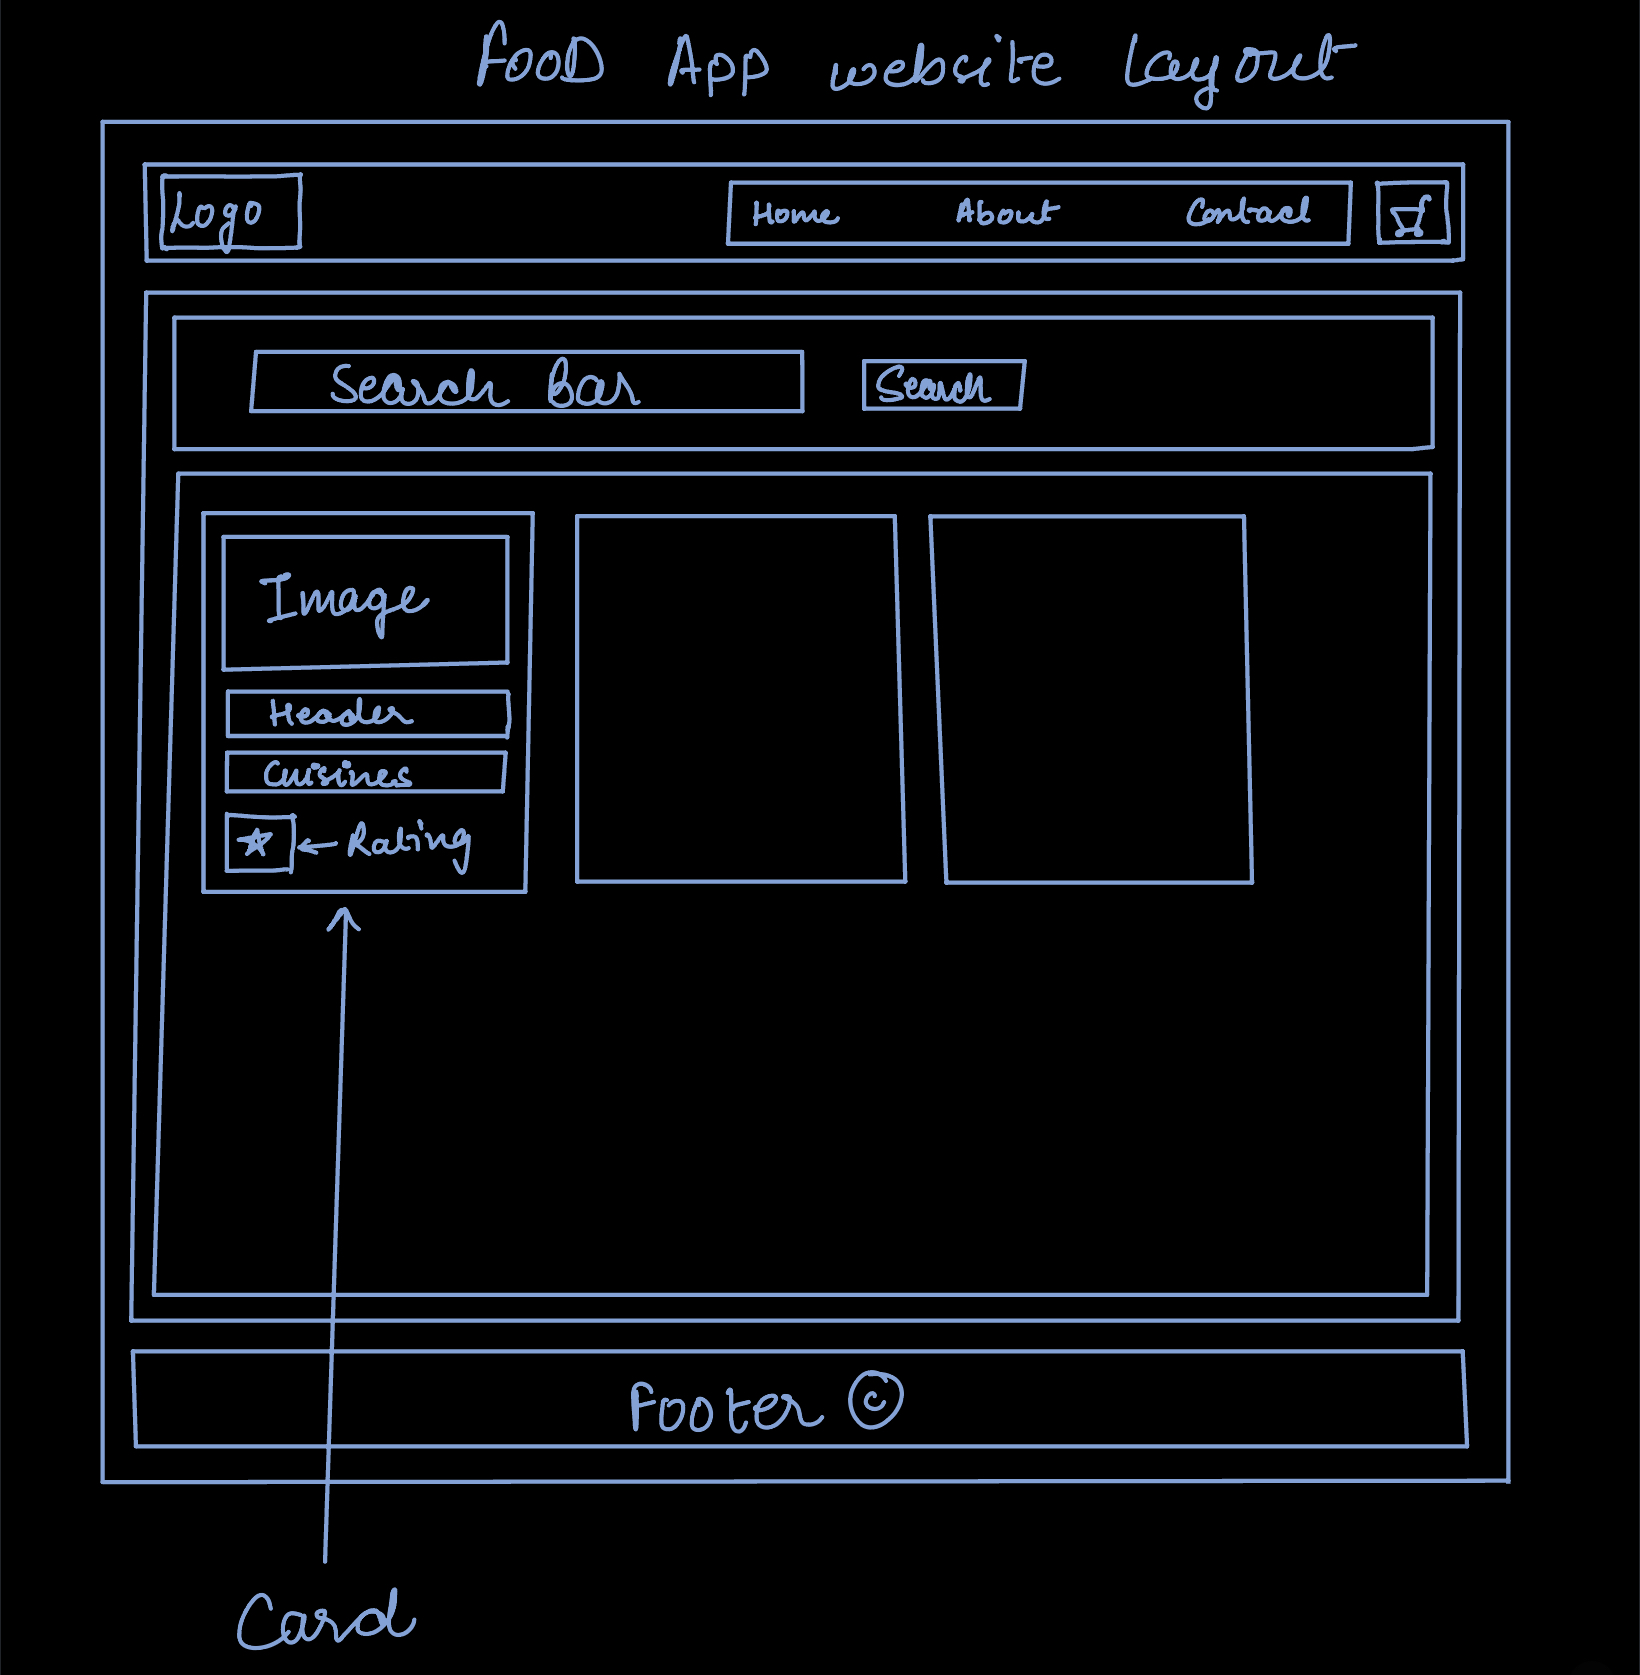 FOOD App website Layout
Logo
Home About Contact
Search Bar Search
Image
Header
Cuisines
Rating
Footer ©
Card